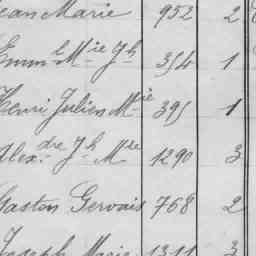 Jean Marie 952 2
Emm.l M.ie J.h 354 1
Henri Julien M.ie 395 1
Alex.dre J.h M.ie 1290 3
Gaston Gervais 768 2
Joseph Marie 1311 3